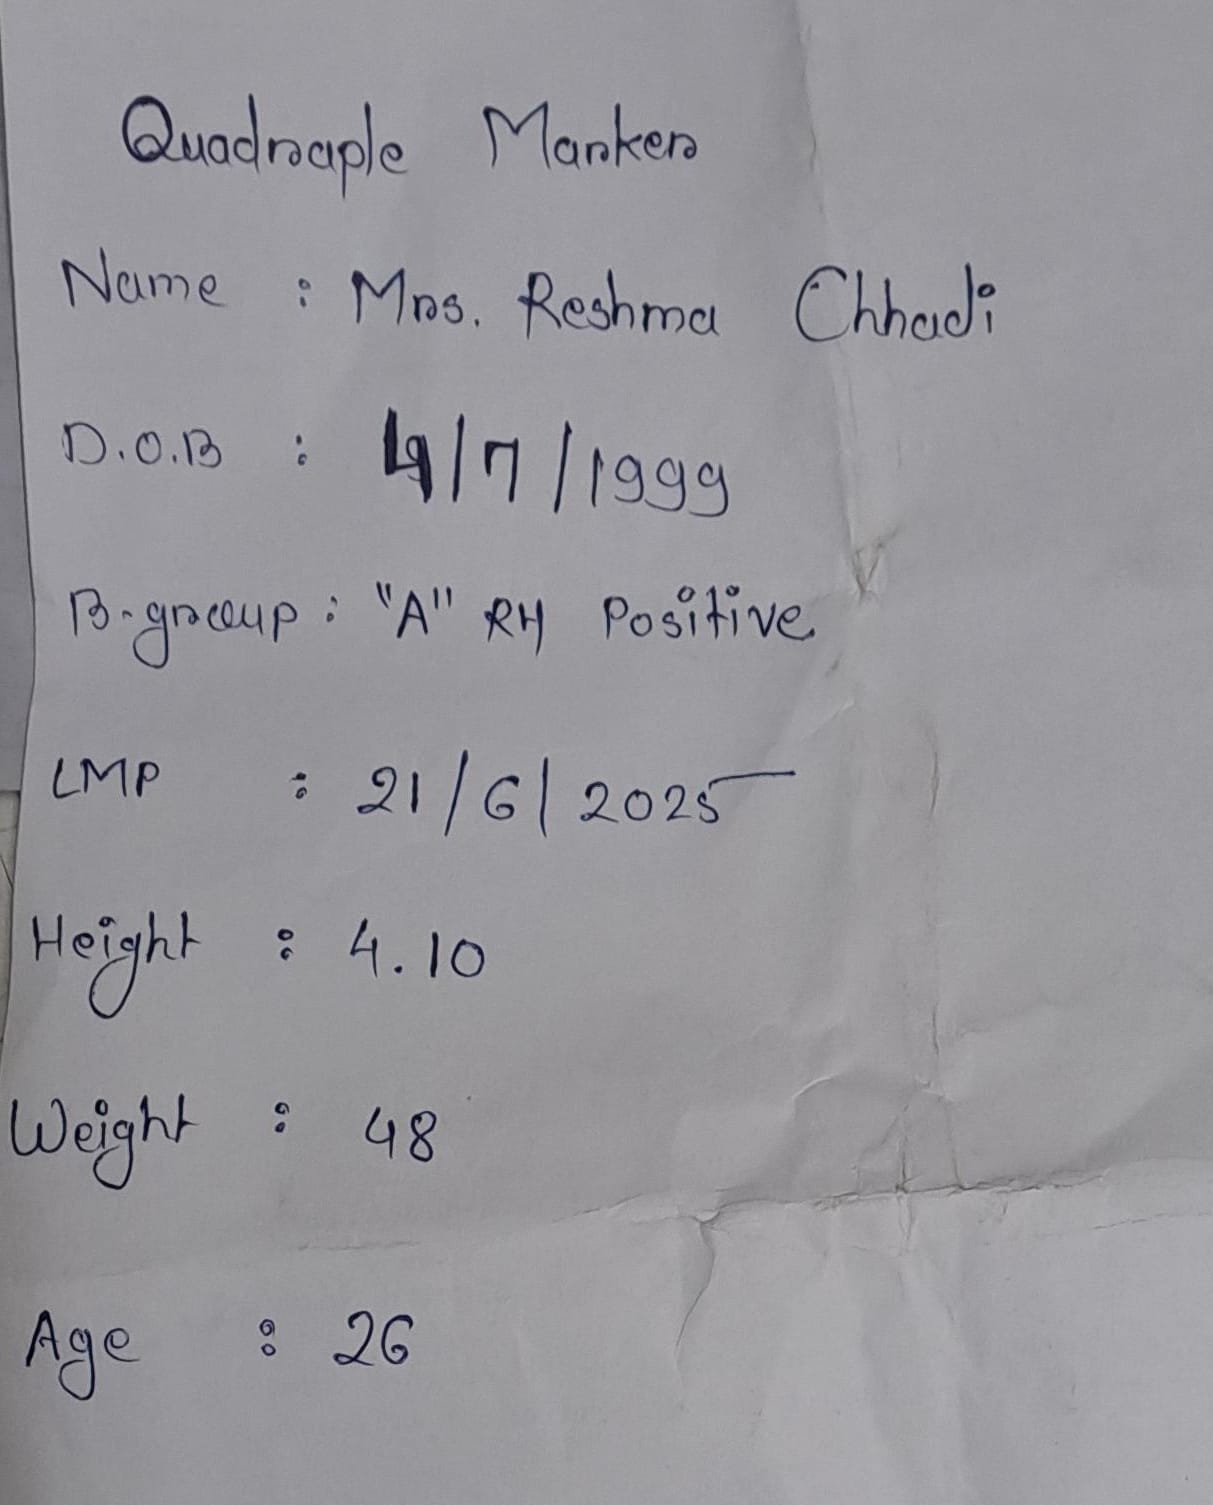 Quadraple Marker
Name : Mrs. Reshma Chhadi
D.O.B : 4/7/1999
B-group : "A" RH Positive
LMP : 21/6/2025
Height : 4.10
Weight : 48
Age : 26